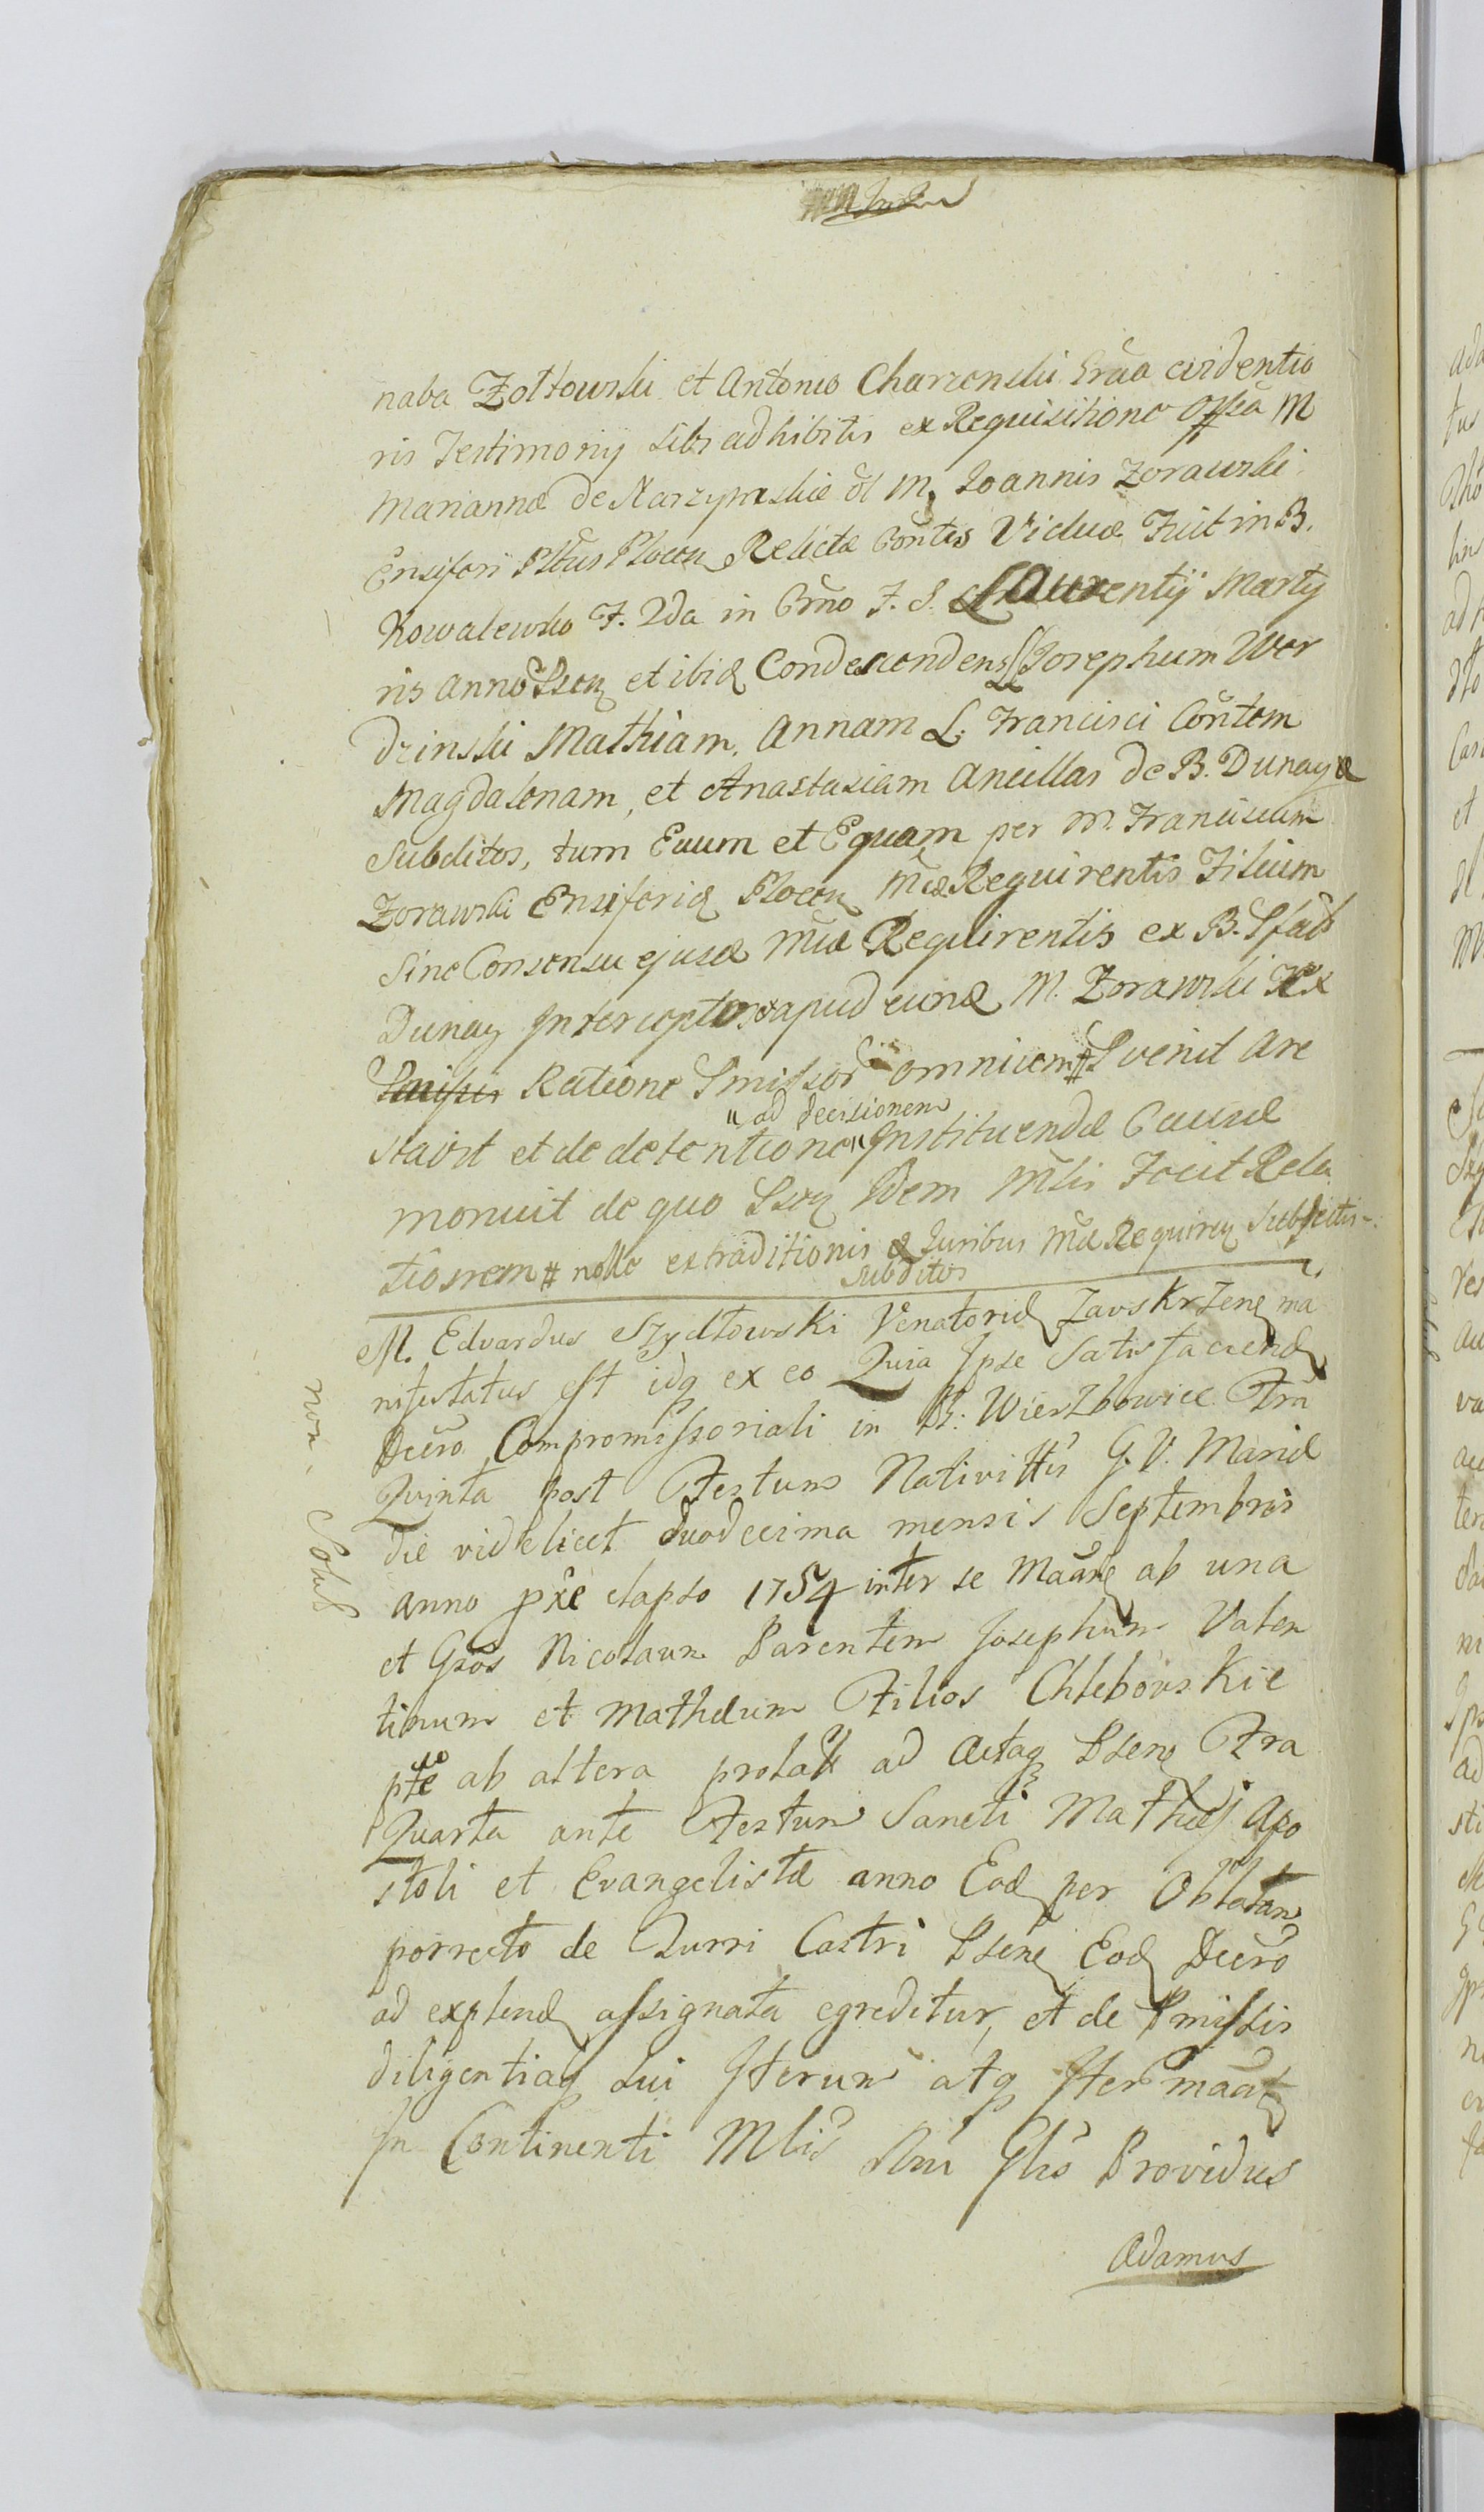 naba Zołtowski et Antonio Charzenski Grãa evidentio
ris Testimonij sibi adhibitis ex Requisitione M
Mariannæ de Narzymskie M. Joannis Zorawski
Ensiferi Plocen Relictæ Cõntis Viduæ Fuit in B.
Kowalewko F. 2da in Crño F. S. Laurentij Marty
ris Anno Psen et ibid Condescendens Josephum Wor
dzinski Mathiam, Annam L. Francisci Cõntem
Magdalenam, et Anastasiam Ancillas de B. Dunay
Subditos, tum Equum et Equam per M. Franciscum
Zorawski Ensiferid Plocen Mcæ Requirentis Filium
Sine Consensu ejusd Mcæ Requirentis ex B.
Dunay Interceptos apud eund M. Zorawski
Ratione Pmissor omnium # Pvenit Are
" ad decisionem
stavit et de detentione " Instituendæ Causæ
monuit de quo Psen Idem Mlis Fecit Rela
tionem # nolle extraditionis Juribus Mcæ Requiren Subjectis
Subditos
M. Edvardus Szydłowski Venatorid Zawskrzen ma
nifestatus est idq ex eo Quia Ipse Satisfaciend
Decro Compromissoriali in B: Wierzbowiec Fria
Quinta post Festum Nativittis G. V. Mariæ
die videlicet duodecima mensis Septembris
anno pxe elapso 1754 inter se Maãne ab una
et Gsos Nicolaum Parentem Josephum Valen
tinum et Mathæum Filios Chlebowskie
pte ab altera prolati ad Actaq Psen Fra
Quarta ante Festum Sancti Mathæj Apo
stoli et Evangelistæ anno Eod per Oblatam
porrecto de Turri Castri Psen Eod Decro
ad explend assignata egreditur, et de Pmissis
diligentiaq sui Iterum atq Iter maãt
In Continenti Mlis Rni Gñs Providus
Adamus
non. Solut